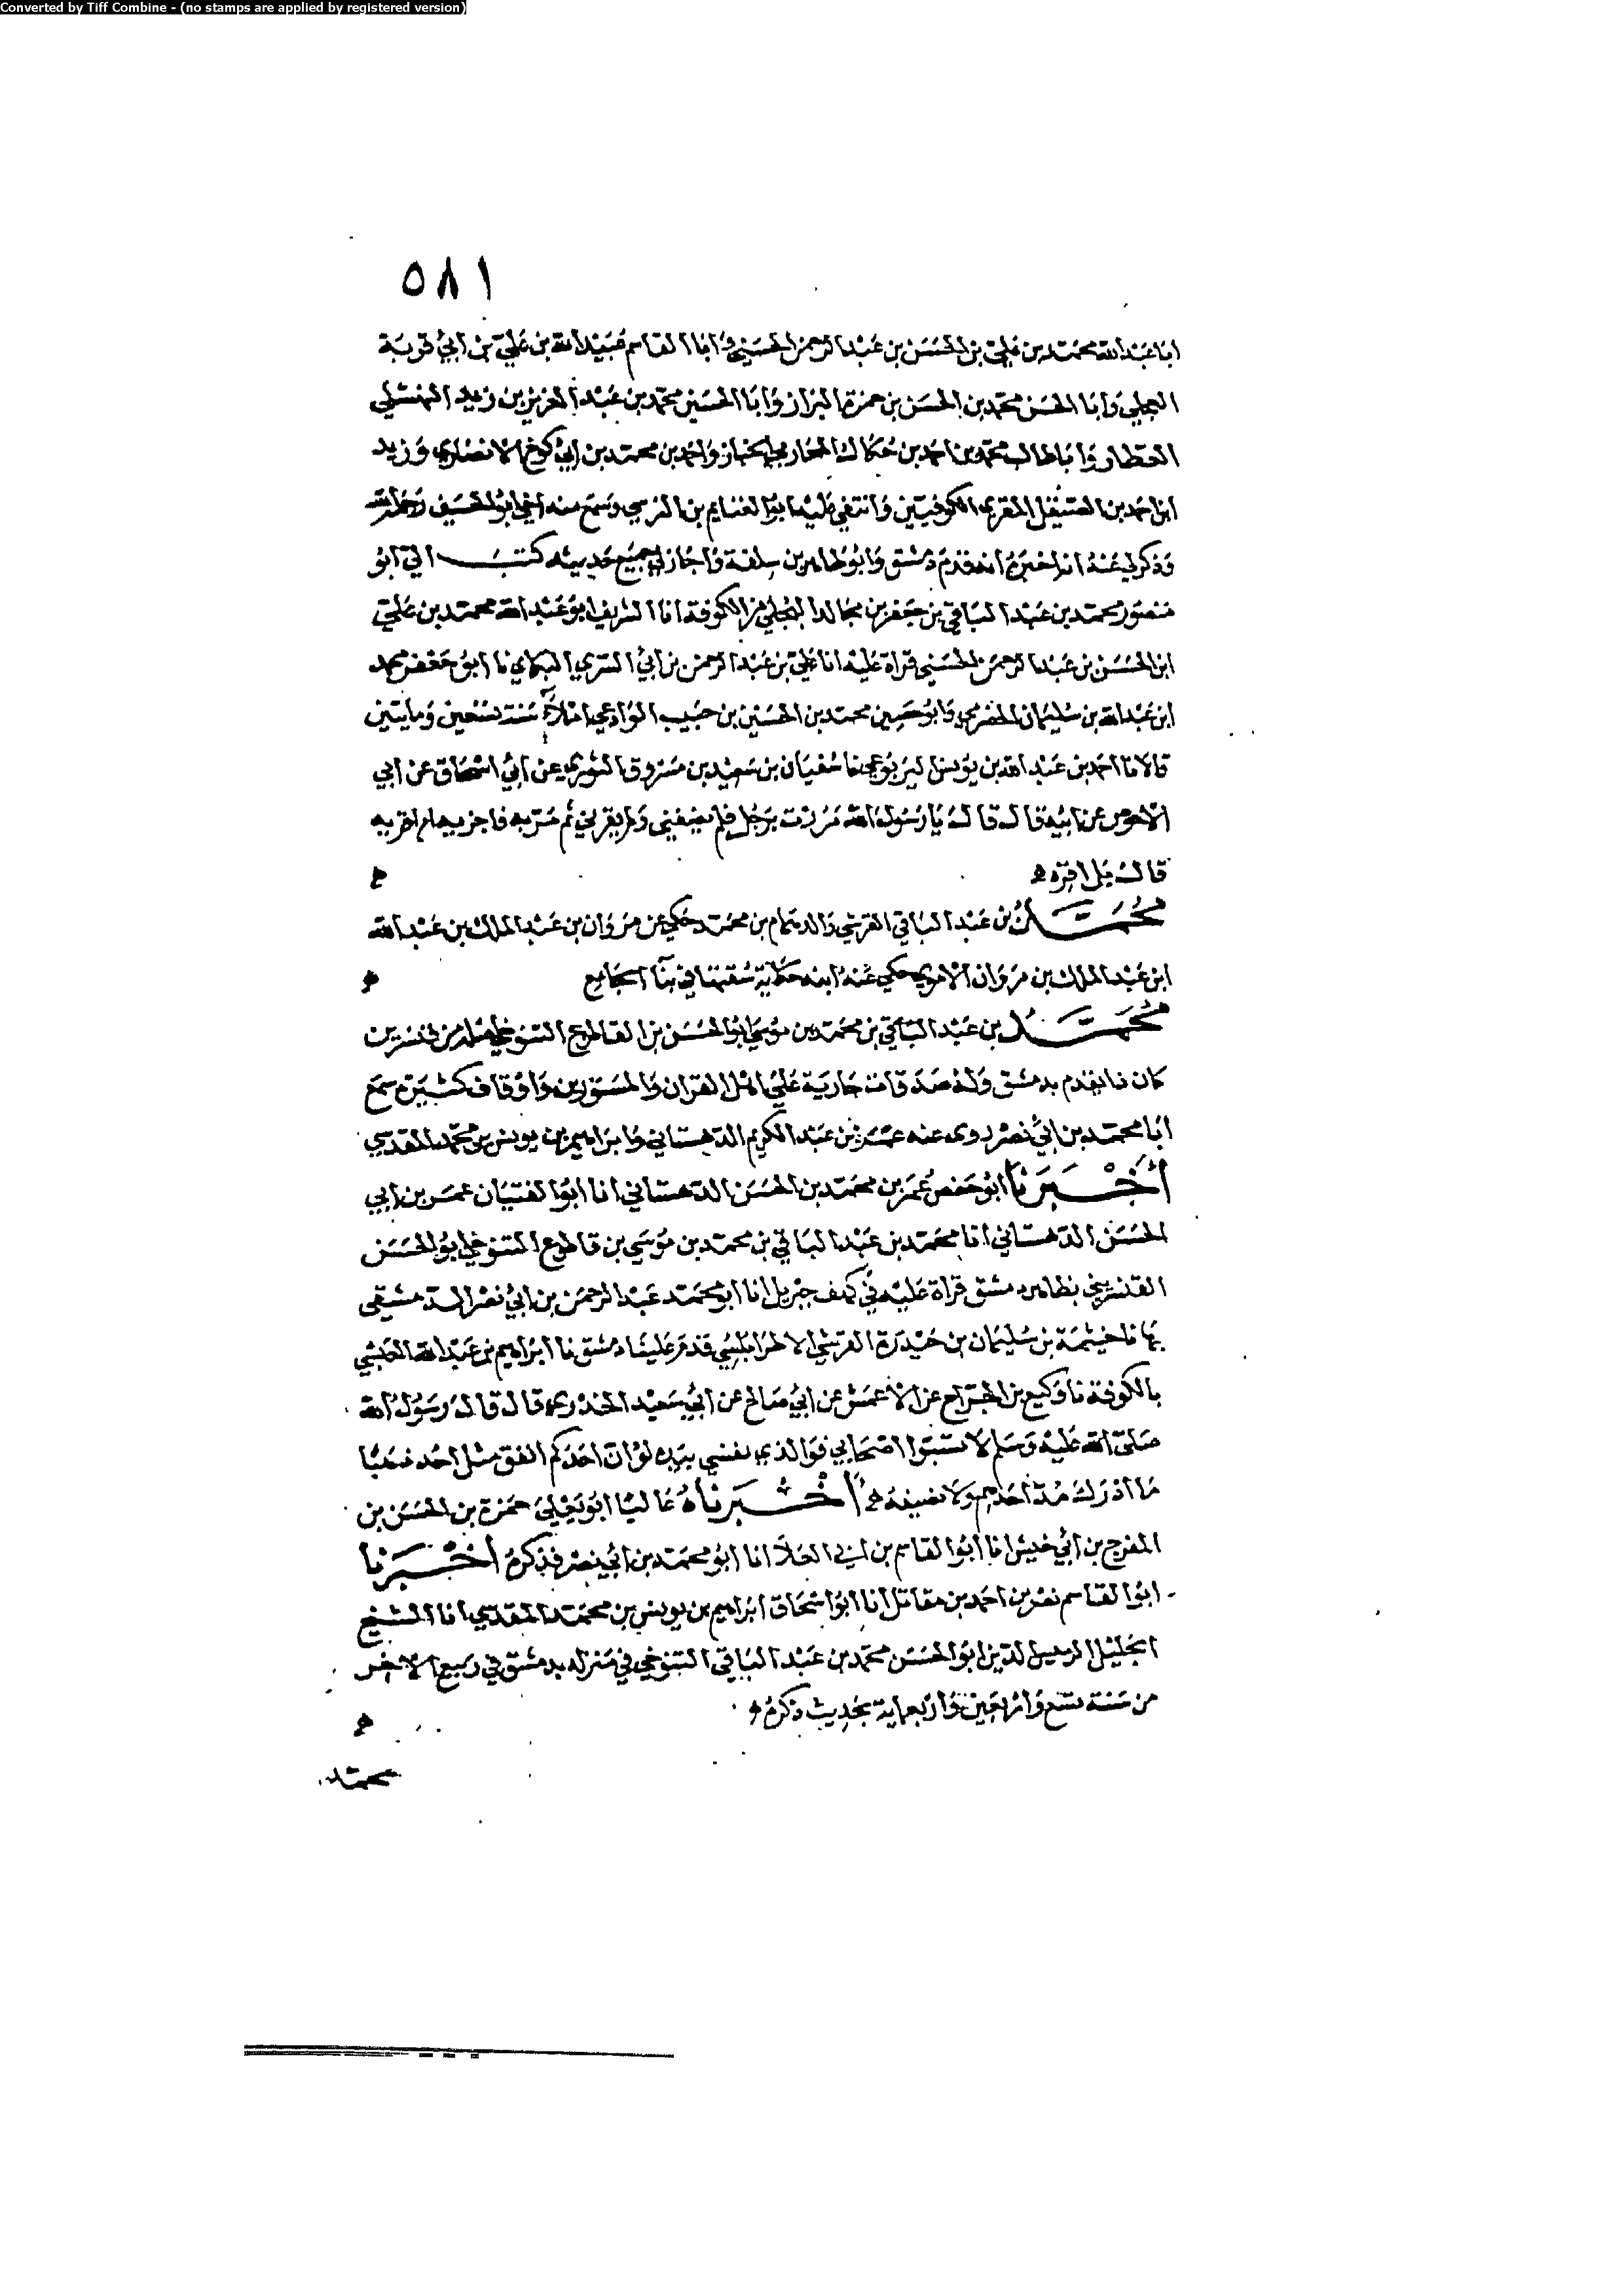 Converted by Tiff Combine - (no stamps are applied by registered version)
٥٨١
ابا عبد الله محمد بن علي بن الحسن بن عبد الرحمن الحسني وابا القاسم عبيد الله بن علي بن ابي قربة
العجلي وابا الحسن محمد بن الحسن بن حمزة البزاز وابا الحسين محمد بن عبد العزيز بن زيد النهشلي
العطار وابا طالب محمد بن احمد بن حكاك المحاربي الخباز واحمد بن محمد بن ابي كوخ الانصاري وزيد
ابن احمد بن الصيقل المقري الكوفيين وانتقي عليه ابو الغنايم بن النرسي وسمع منه اخي ابو الحسين رحمه الله
وذكر لي عنه انه اخبره انه قدم دمشق وابو طاهر بن سلفة واجاز لي جميع حديثه كتب الي ابو
منصور محمد بن عبد الباقي بن جعفر بن مجالد البجلي من الكوفة انا الشريف ابو عبد الله محمد بن علي
ابن الحسن بن عبد الرحمن الحسني قراة عليه انا علي بن عبد الرحمن بن ابي السري البكاي نا ابو جعفر محمد
ابن عبد الله بن سليمان الحضرمي وابو حصين محمد بن الحسين بن حبيب الوادعي املاءً سنة تسعين ومايتين
قالا نا احمد بن عبد الله بن يونس اليربوعي نا سفيان بن سعيد بن مسروق الثوري عن ابي اسحاق عن ابي
الاحوص عن ابيه قال قال يا رسول الله مررت برجل فلم يضيفني ولم يقرني ثم مر به فاجزيه ام اقريه
قال بل اقره
محمد بن عبد الباقي القرشي والد تمام بن محمد حكي عن مروان بن عبد الملك بن عبد الله
ابن عبد الملك بن مروان الاموي حكي عنه ابنه حكاية سقتها في بنآ الجامع
محمد بن عبد الباقي بن محمد بن موسي ابو الحسن بن القالوع التنوخي من قنسرين
كان نا يقدم بدمشق وله صدقات جارية علي اهل القران والمستورين واوقاف كثيرة سمع
ابا محمد بن ابي نصر روى عنه عمر بن عبد الكريم الدهستاني وابراهيم بن يونس بن محمد المقدسي
اخبرنا ابو حفص عمر بن محمد بن الحسن الدهستاني انا ابو الفتيان عمر بن ابي
الحسن الدهستاني انا محمد بن عبد الباقي بن محمد بن موسي بن قالوع التنوخي ابو الحسن
القنسريني بظاهر دمشق قراة عليه في كهف جبريل انا ابو محمد عبد الرحمن بن ابي نصر الدمشقي
بها نا خيثمة بن سليمان بن حيدرة القرشي الاطرابلسي قدم علينا دمشق نا ابراهيم بن عبد الله العبسي
بالكوفة نا وكيع بن الجراح عن الاعمش عن ابي صالح عن ابي سعيد الخدري قال قال رسول الله
صلى الله عليه وسلم لا تسبوا اصحابي فوالذي نفسي بيده لو ان احدكم انفق مثل احد ذهبًا
ما ادرك مد احدهم ولا نصيفه اخبرناه عاليًا ابو يعلي حمزة بن الحسن بن
المفرج بن ابي خيش انا ابو القاسم بن ابي العلآ انا ابو محمد بن ابي نصر فذكره اخبرنا
ابو القاسم نصر بن احمد بن مقاتل انا ابو اسحاق ابراهيم بن يونس بن محمد المقدسي انا الشيخ
الجليل الرييس الدين ابو الحسن محمد بن عبد الباقي التنوخي في منزله بدمشق في ربيع الاخر
من سنة تسع واربعين واربعماية بحديث ذكره
محمد